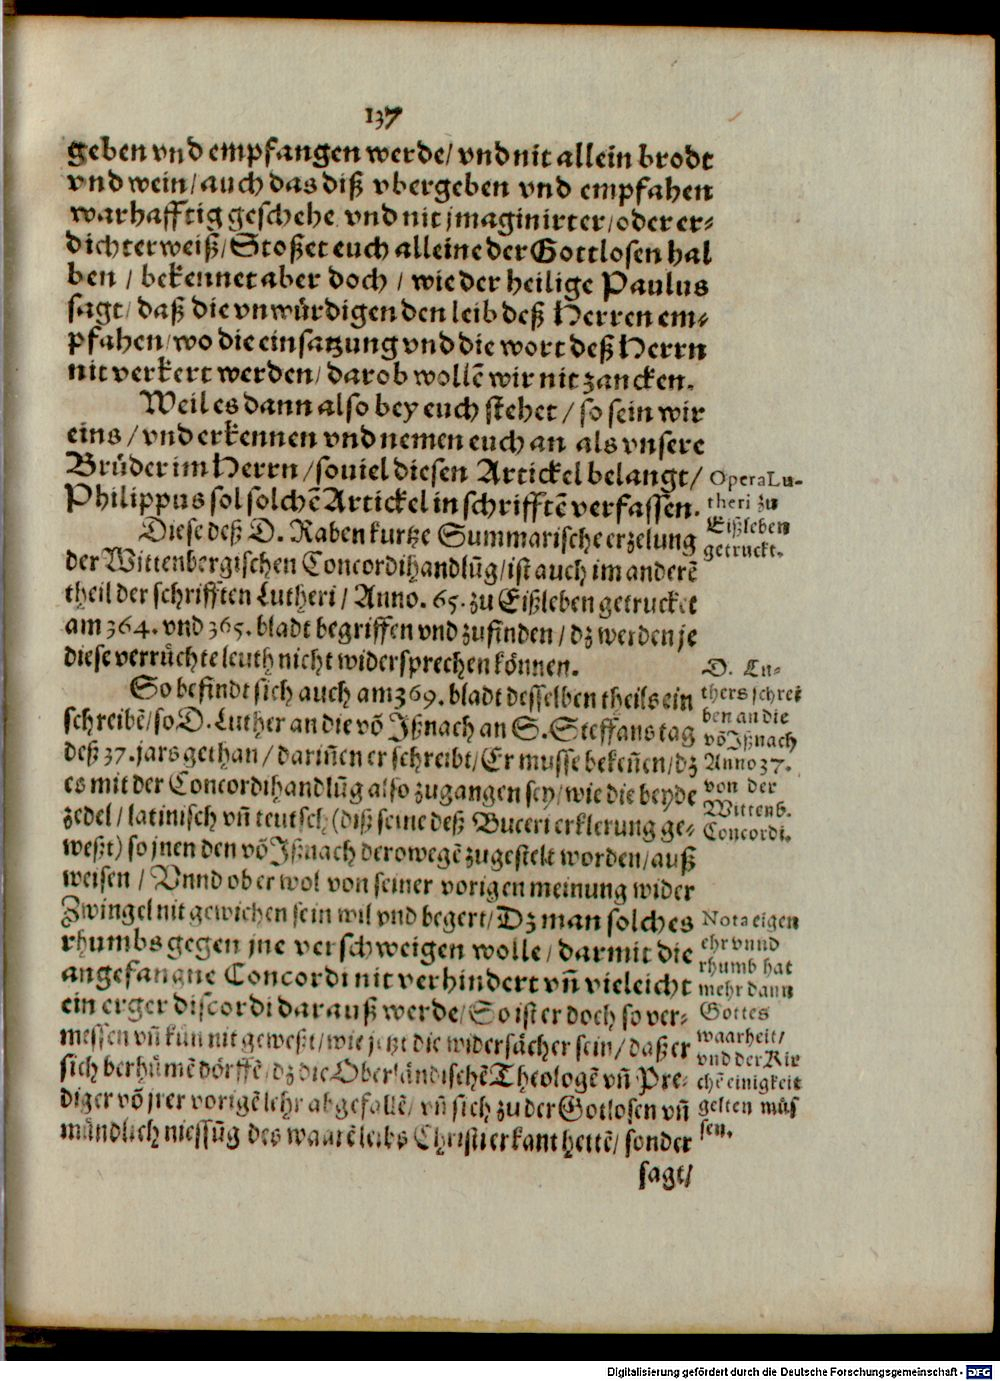 137
geben vnd empfangen werde/ vnd nit allein brodt
vnd wein/ auch das diß vbergeben vnd empfahen
warhafftig geschehe vnd nit jmaginirter/ oder er-
dichterweiß/ Stoßet euch alleine der Gottlosen hal
ben / bekennet aber doch / wie der heilige Paulus
sagt/ daß die vnwürdigen den leib deß Herren em-
pfahen/ wo die einsatzung vnd die wort deß Herrn
nit verkert werden/ darob wollē wir nit zancken.
Weil es dann also bey euch stehet / so sein wir
eins / vnd erkennen vnd nemen euch an als vnsere
Brüder im Herrn / souiel diesen Artickel belangt/
Philippus sol solchē Artickel in schrifftē verfassen.
Opera Lu-
theri zu
Eißleben
getruckt.
Diese deß D. Raben kurtze Summarische erzelung
der Wittenbergischen Concordihandlūg/ ist auch im anderē
theil der schrifften Lutheri / Anno. 65. zu Eißleben getrucket
am 364. vnd 365. bladt begriffen vnd zufinden / dz werden je
diese verrüchte leuth nicht widersprechen können.
So befindt sich auch am 369. bladt desselben theils ein
schreibē/ so D. Luther an die vō Ißnach an S. Steffans tag
deß 37. jars gethan / dariñen er schreibt/ Er musse bekeñen/ dz
es mit der Concordihandlūg also zugangen sey/ wie die beyde
zedel / latinisch vñ teutsch (diß seine deß Buceri erklerung ge-
weßt) so jnen den vō Ißnach derowegē zugestelt worden/ auß
weisen / Vnnd ob er wol von seiner vorigen meinung wider
Zwingel nit gewichen sein wil vnd begert/ Dz man solches
rhumbs gegen jne verschweigen wolle/ darmit die
angefangne Concordi nit verhindert vñ vieleicht
ein erger discordi darauß werde/ So ist er doch so ver-
messen vñ kün nit geweßt/ wie jetzt die widersächer sein/ daß er
sich berhümē dörffē/ dz die Oberländischē Theologē vñ Pre-
diger vō jrer vorigē lehr abgefallē/ vñ sich zu der Gotlosen vñ
mündlich niessūg des waarē leibs Christi erkant hettē/ sonder
D. Lu-
thers schrei
ben an die
vō Ißnach
Anno 37.
von der
Wittenb.
Concordi.
Nota eigen
ehr vnnd
rhumb hat
mehr dann
Gottes
waarheit/
vnd der Kir
chē einigkeit
gelten müs
sen.
sagt/
Digitalisierung gefördert durch die Deutsche Forschungsgemeinschaft - DFG